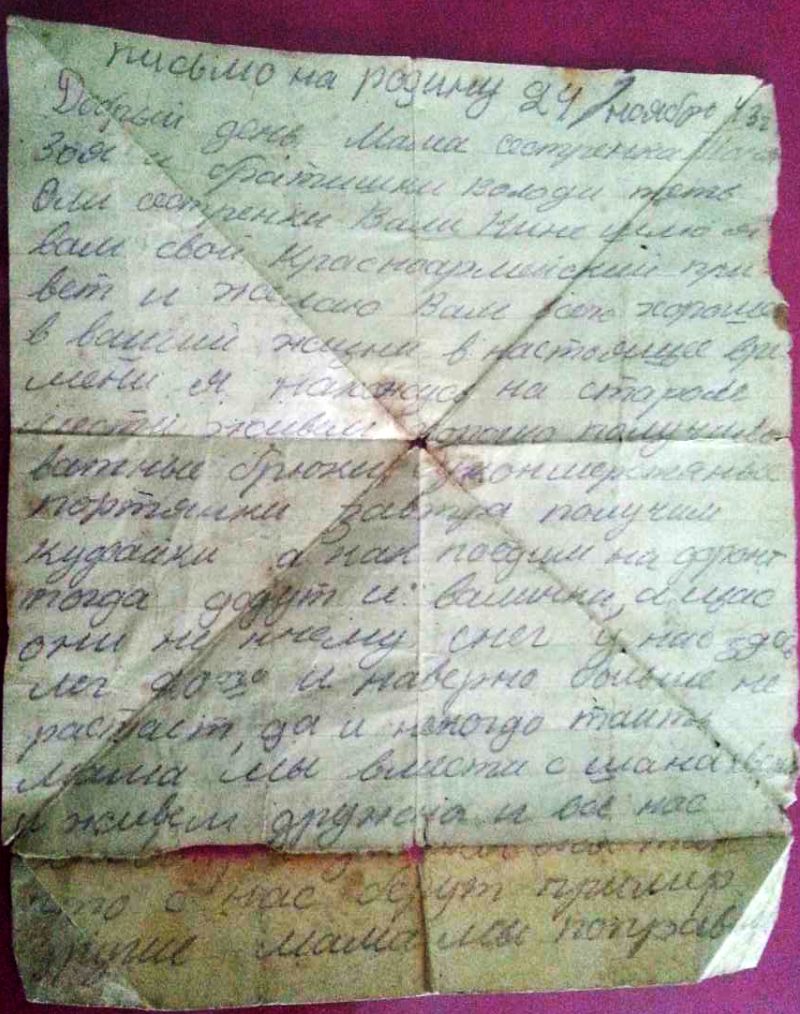 письмо на родину 24 / ноября 43г
Добрый день Мама сестренка
Зоя и братишки Володи теть
Оли сестренки Вали Нине шлю я
вам свой Красноармейский при
вет и желаю Вам всего хороше
в вашей жизни в настоящее вре
мени я нахожусь на старом
мести живем хорошо получили
ватные брюки
портянки завтра получим
куфайки а как поедим на фронт
тогда дадут и валинки, а щас
они не к чему снег у нас
лег и наверно больше не
растаит, да и некогда таить
мама мы вмисти с
и живем дружно и все нас
что с нас берут пример
другие мама мы